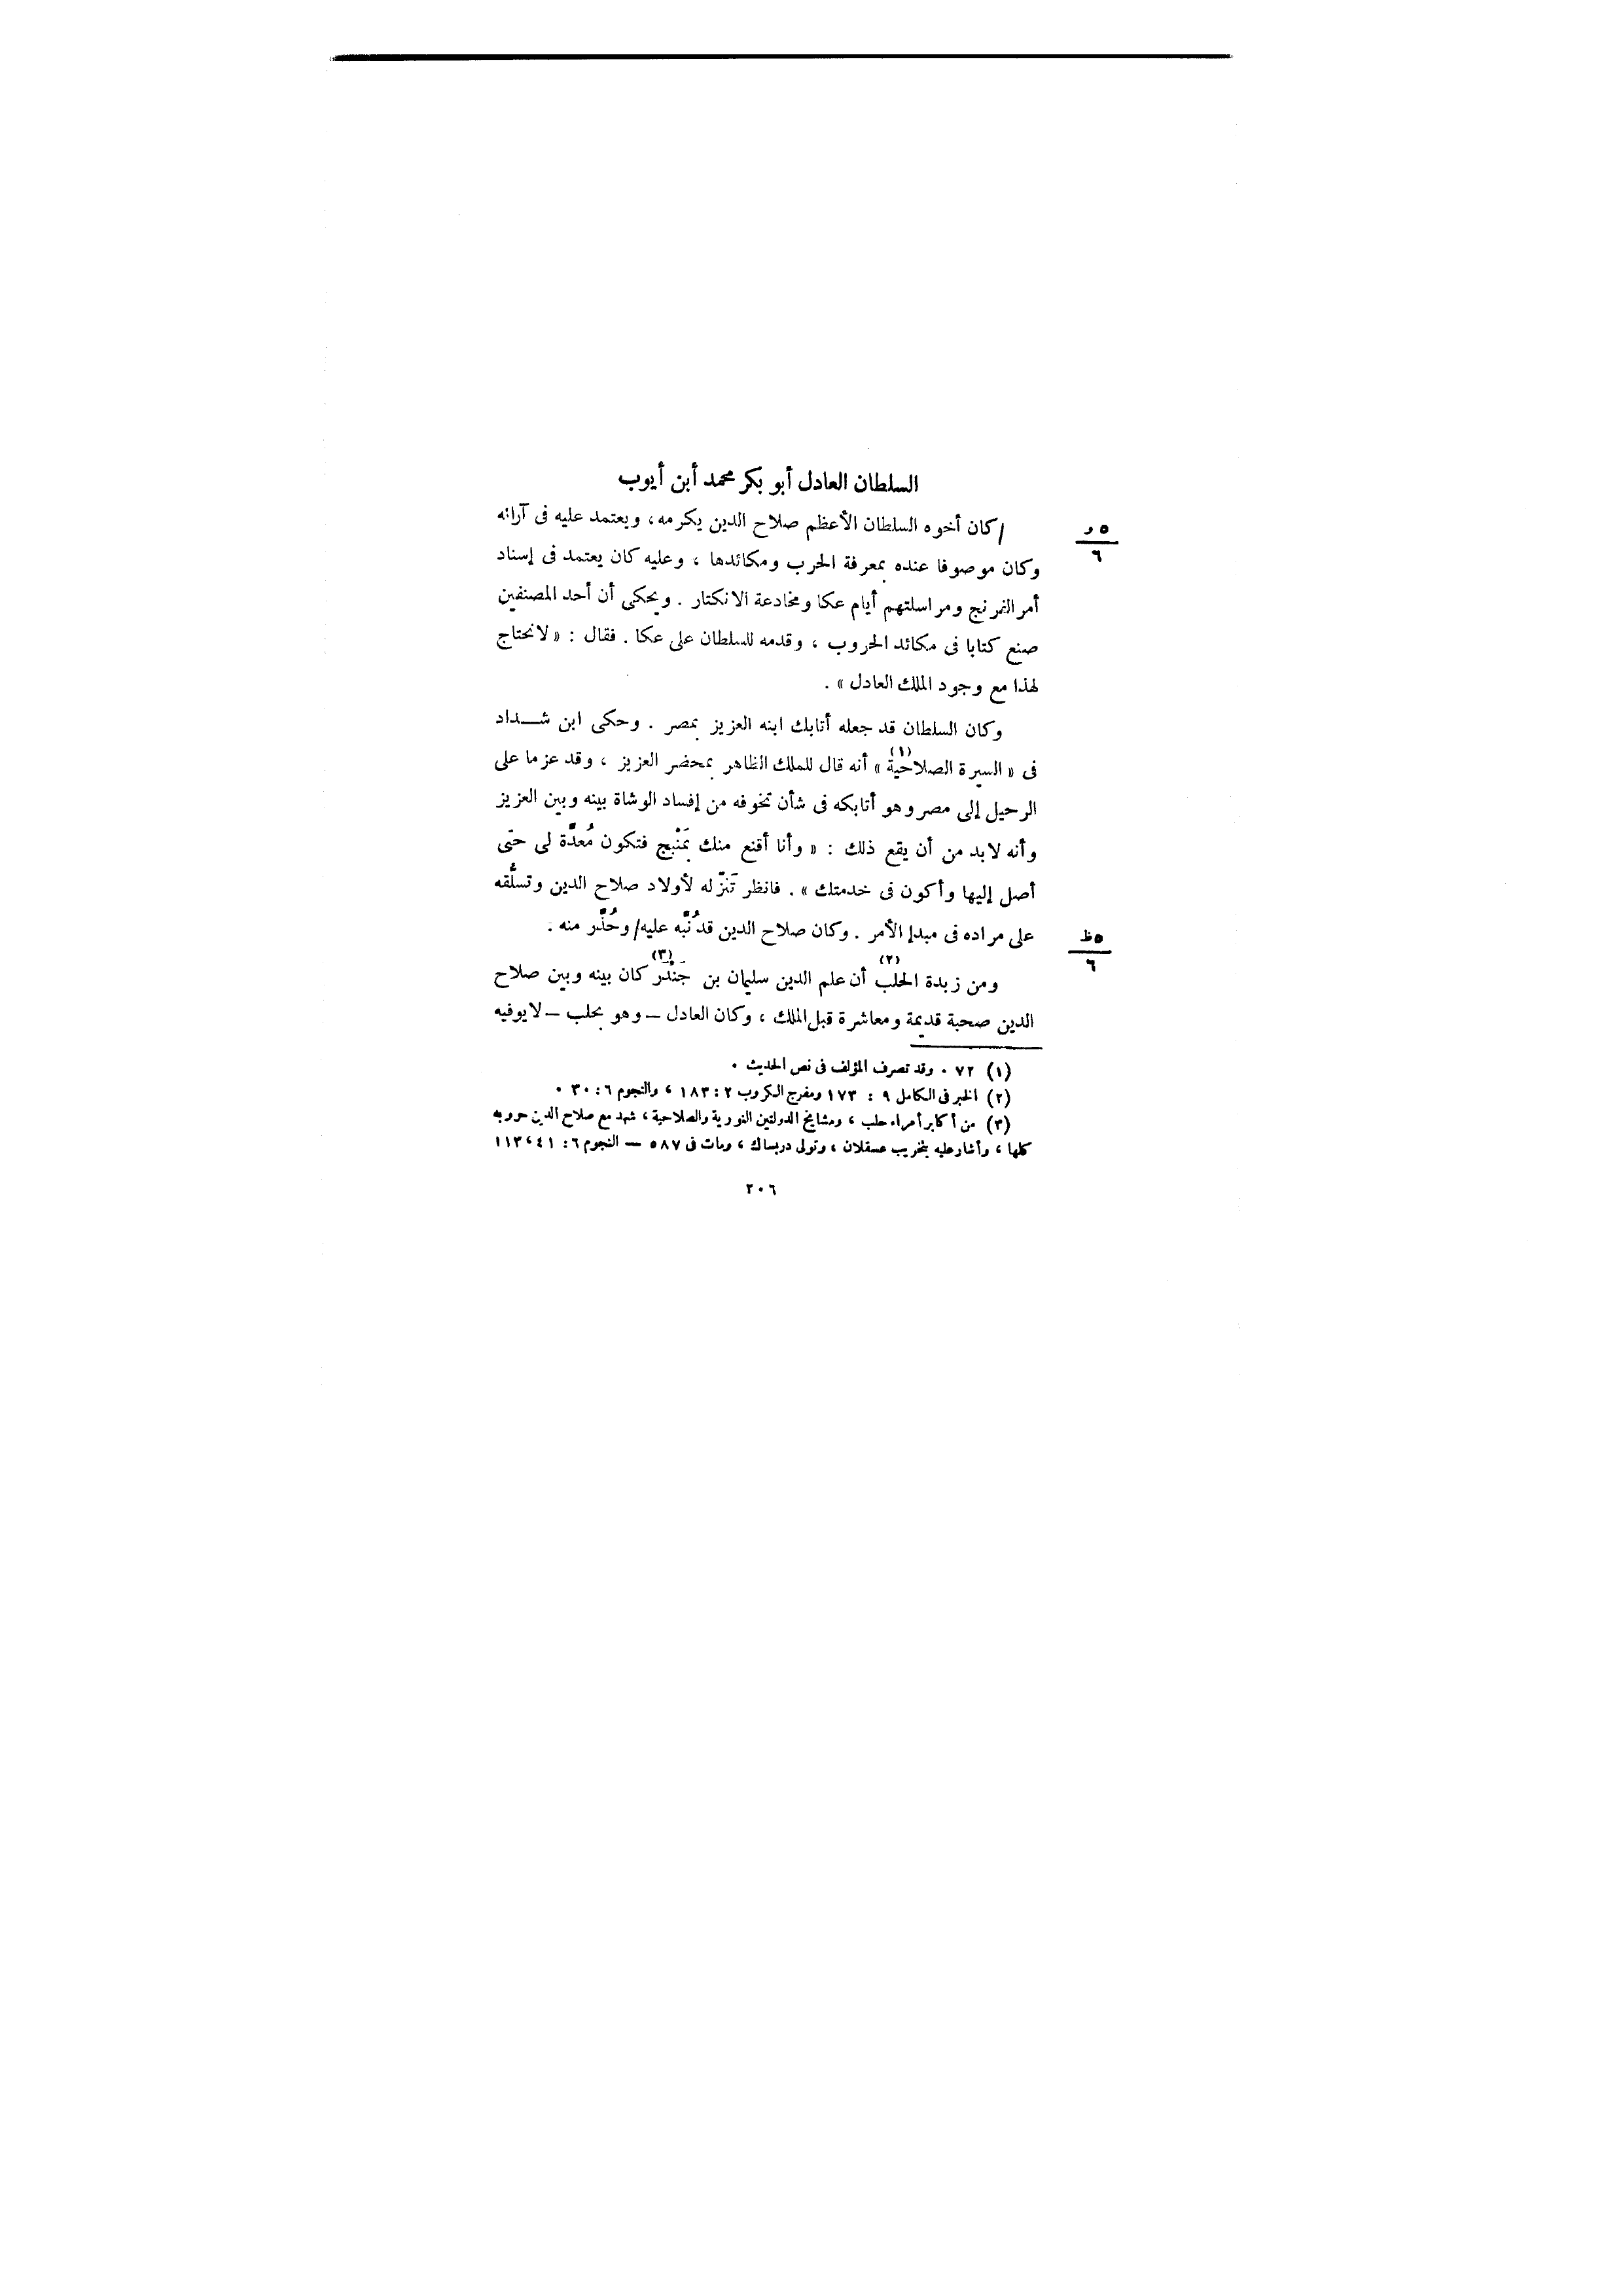 السلطان العادل أبو بكر محمد أبن أيوب
٥ و
٦
/ كان أخوه السلطان الأعظم صلاح الدين يكرمه، ويعتمد عليه فى آرائه
وكان موصوفا عنده بمعرفة الحرب ومكائدها ، وعليه كان يعتمد فى إسناد
أمر الفرنج ومراسلتهم أيام عكا ومخادعة الانكتار . ويحكى أن أحد المصنفين
صنع كتابا فى مكائد الحروب ، وقدمه للسلطان على عكا . فقال : « لا نحتاج
لهذا مع وجود الملك العادل » .
وكان السلطان قد جعله أتابك ابنه العزيز بمصر . وحكى ابن شـــداد
فى « السيرة الصلاحية (١) » أنه قال للملك الظاهر بمحضر العزيز ، وقد عزما على
الرحيل إلى مصر وهو أتابكه فى شأن تخوفه من إفساد الوشاة بينه وبين العزيز
وأنه لابد من أن يقع ذلك : « وأنا أقنع منك بمَنْبج فتكون مُعدَّة لى حتّى
أصل إليها وأكون فى خدمتك » . فانظر تَنَزّله لأولاد صلاح الدين وتسلُّقه
على مراده فى مبدإ الأمر . وكان صلاح الدين قد نُبّه عليه/ وحُذّر منه .
٥ ظ
٦
ومن زبدة الحلب (٢) أن علم الدين سليمان بن جَنْدَر (٣) كان بينه وبين صلاح
الدين صحبة قديمة ومعاشرة قبل الملك ، وكان العادل ــ وهو بحلب ــ لا يوفيه
(١) ٧٢ . وقد تصرف المؤلف فى نص الحديث .
(٢) الخبر فى الكامل ٩ : ١٧٣ ومفرج الكروب ٢ : ١٨٣ ، والنجوم ٦ : ٣٠ .
(٣) من أكابر أمراء حلب ، ومشايخ الدولتين النورية والصلاحية ، شهد مع صلاح الدين حروبه
كلها ، وأشار عليه بتخريب عسقلان ، وتولى دربساك ، ومات فى ٥٨٧ — النجوم ٦ : ٤١ ، ١١٣
٢٠٦